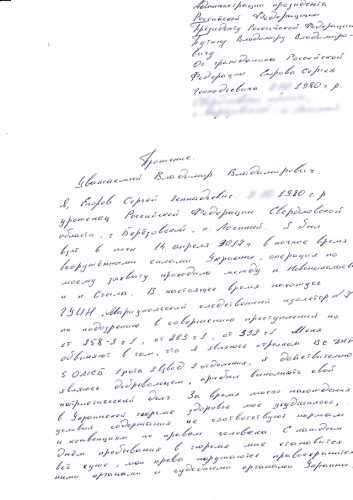 Администрации президента
Российской Федерации
Президенту Российской Федерации
Путину Владимиру Владимиро-
вичу
От гражданина Российской
Федерации Егорова Сергея
Геннадьевича 1980 г.р.
Прошение.
Уважаемый Владимир Владимирович.
Я, Егоров Сергей Геннадьевич 1980 г.р
уроженец Российской Федерации Свердловской
области, г. Берёзовский, п. Лосиный. Я был
взят в плен 14 апреля 2017г в ночное время
вооружёнными силами Украины, операция по
моему захвату проходила между п Новолуганское
и п. Доломитное. В настоящее время нахожусь
ГУИН, Мариупольский следственный изолятор
по подозрению в совершении преступления по
ст 258-3 ч 1, ст 263 ч 1, ст 332 ч 1 Меня
обвиняют в том, что я являюсь стрелком ВС ДНР
5 ОМСБ 1 рота 2 взвод 2 отделения, я действительно
являюсь добровольцем, прибыл выполнять свой
патриотический долг. За время моего нахождения
в Украинской тюрьме здоровье моё ухудшилось,
условия содержания не соответствуют нормам
и конвенциям по правам человека. С каждым
днём пребывания в тюрьме мне становится
всё хуже, мои права нарушаются правоохраните-
ными органами и судебными органами Украины.